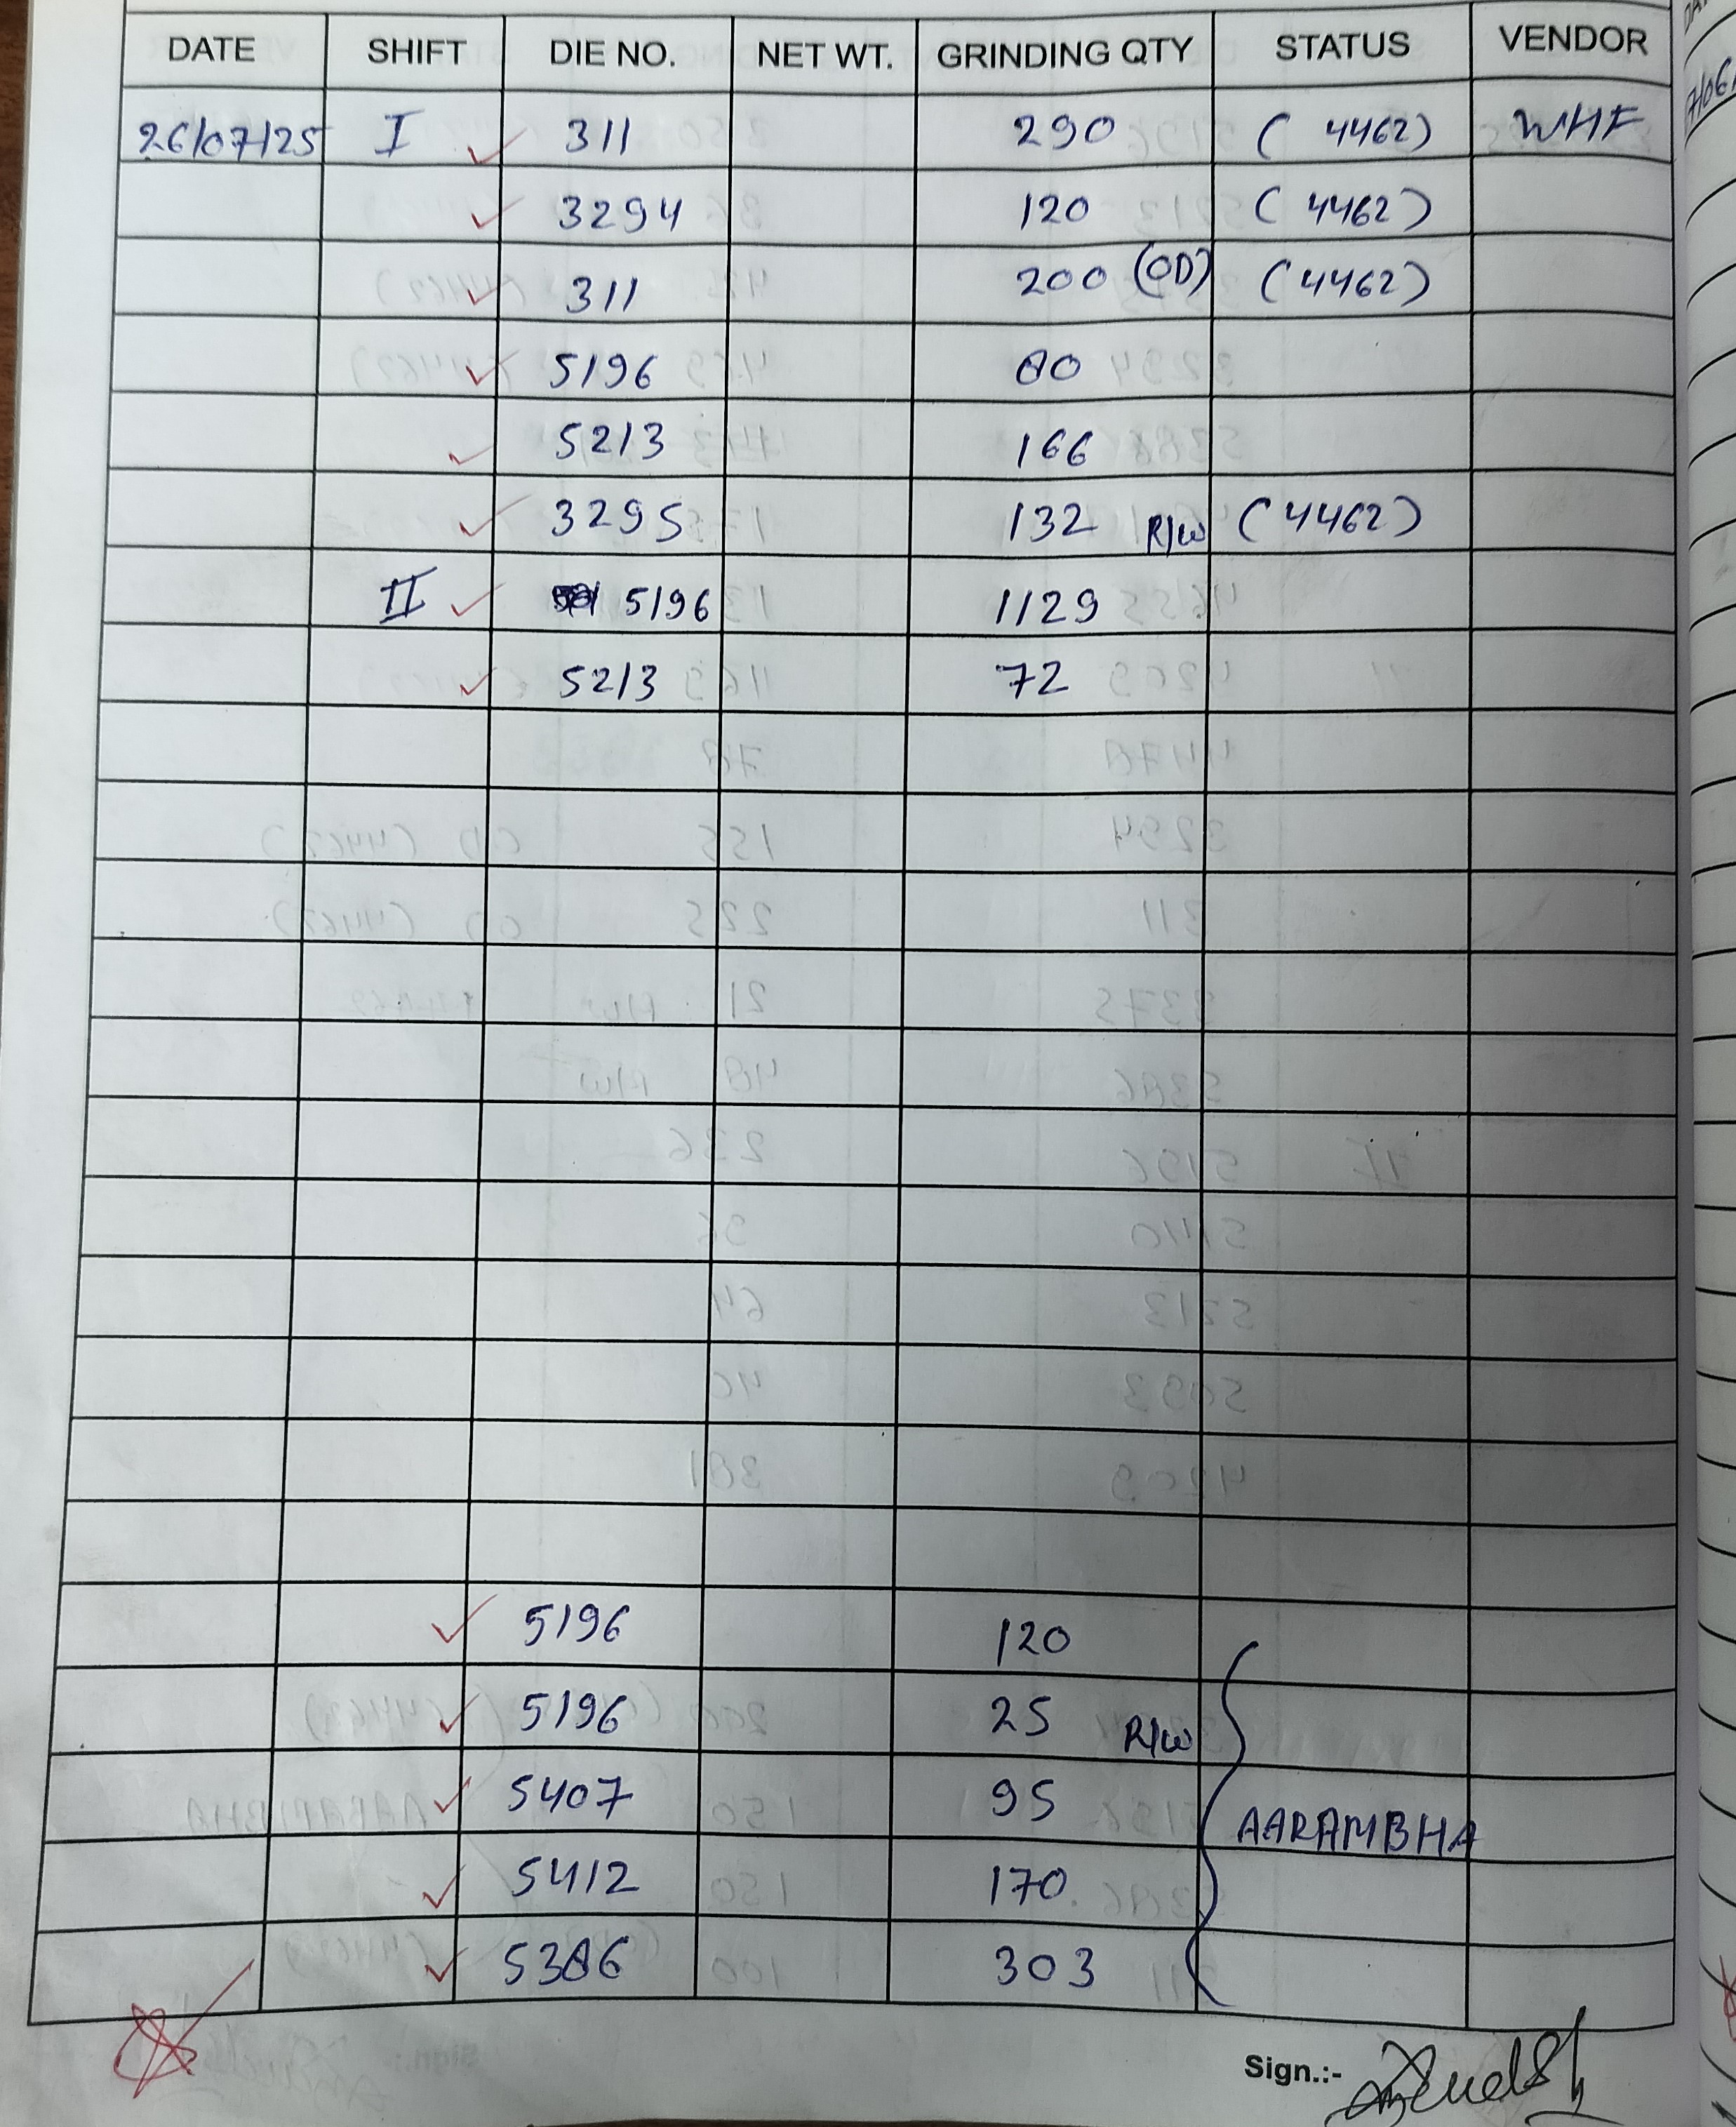 DATE SHIFT DIE NO. NET WT. GRINDING QTY STATUS VENDOR
26/07/25 I ✓ 311 290 (4462) WHF
✓ 3294 120 (4462)
✓ 311 200 (OD) (4462)
✓ 5196 80
✓ 5213 166
✓ 3295 132 R/W (4462)
II ✓ 5196 1129
✓ 5213 72
✓ 5196 120
✓ 5196 25 R/W
✓ 5407 95 AARAMBHA
✓ 5412 170
✓ 5386 303
Sign.:-